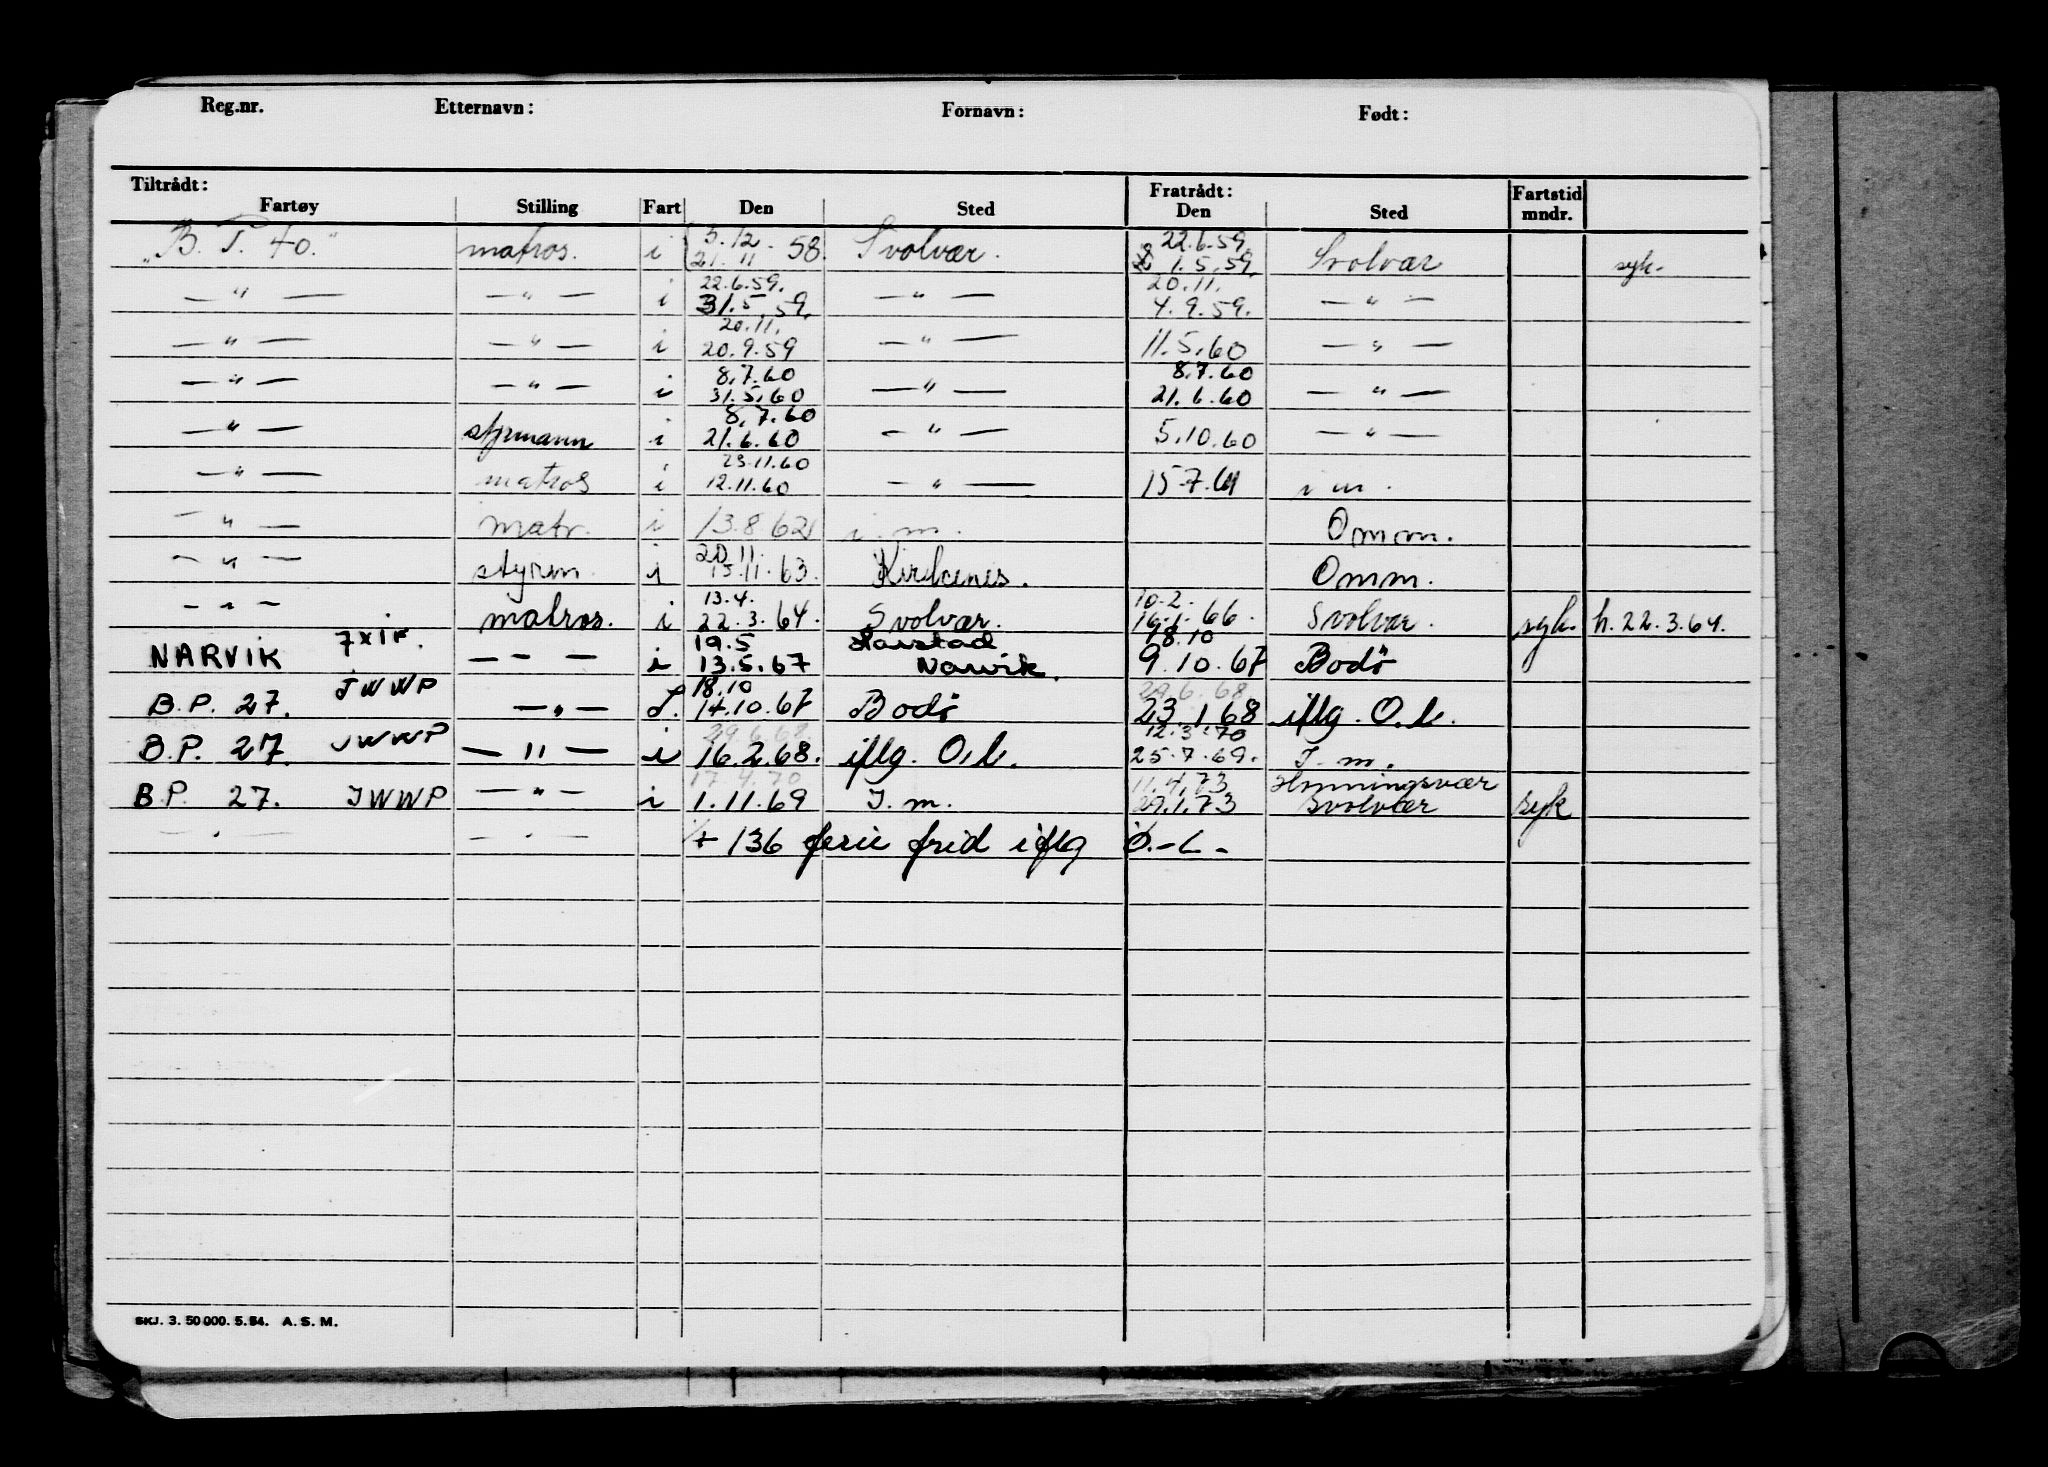 Reg.nr. Etternavn: Fornavn: Født:
Tiltrådt: Fratrådt: Fartstid
Fartøy Stilling Fart Den Sted Den Sted mndr.
3.12 22.6.59.
„B. T. 40.” matros. i 21.11 58. Svolvær. 1.5.59. Svolvær syk.
22.6.59. 20.11.
— " — — " — i 31.5.59. — " — 4.9.59. — " —
20.11.
— " — — " — i 20.9.59 — " — 11.5.60 — " —
8.7.60 8.7.60
— " — — " — i 31.5.60 — " — 21.6.60 — " —
8.7.60
— " — styrmann i 21.6.60 — " — 5.10.60 — " —
23.11.60
— " — matros i 12.11.60 — " — 15.7.61 i m.
— " — matr. i 13.8.62 i. m. Omm.
20.11.
— " — styrm. i 15.11.63. Kirkenes. Omm.
13.4. 10.2.
— " — matros. i 22.3.64. Svolvær. 16.1.66. Svolvær. syk. h. 22.3.64.
19.5 Harstad 18.10
NARVIK — " — i 13.5.67 Narvik. 9.10.67 Bodö
18.10 29.6.68.
B.P. 27. JWWP — " — 14.10.67 Bodö 23.1.68 iflg. O.L.
29.6.68. 12.3.70
B.P. 27. JWWP — " — i 16.2.68. iflg. O.L. 25.7.69. I. m.
17.4.70 11.4.73 Henningsvær
B.P. 27. JWWP — " — i 1.11.69 I. m. 29.1.73 Svolvær syk
— " — — " — + 136 ferie frid iflg O.-L-
SKJ. 3. 50 000. 5.54. A. S. M.